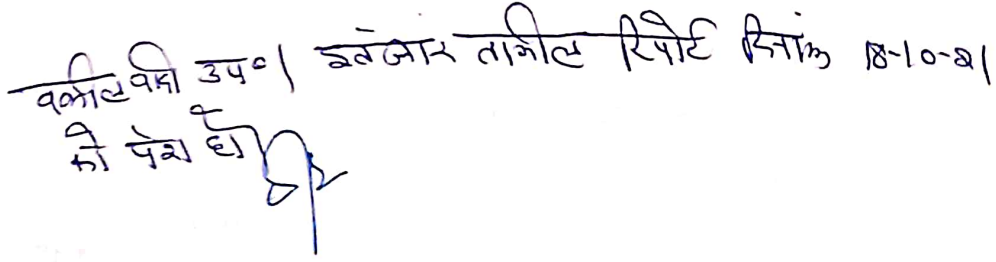 वकील वादी उप०। इतेजार तामील रिपोर्ट दिनांक 18-10-21
को पेश हो